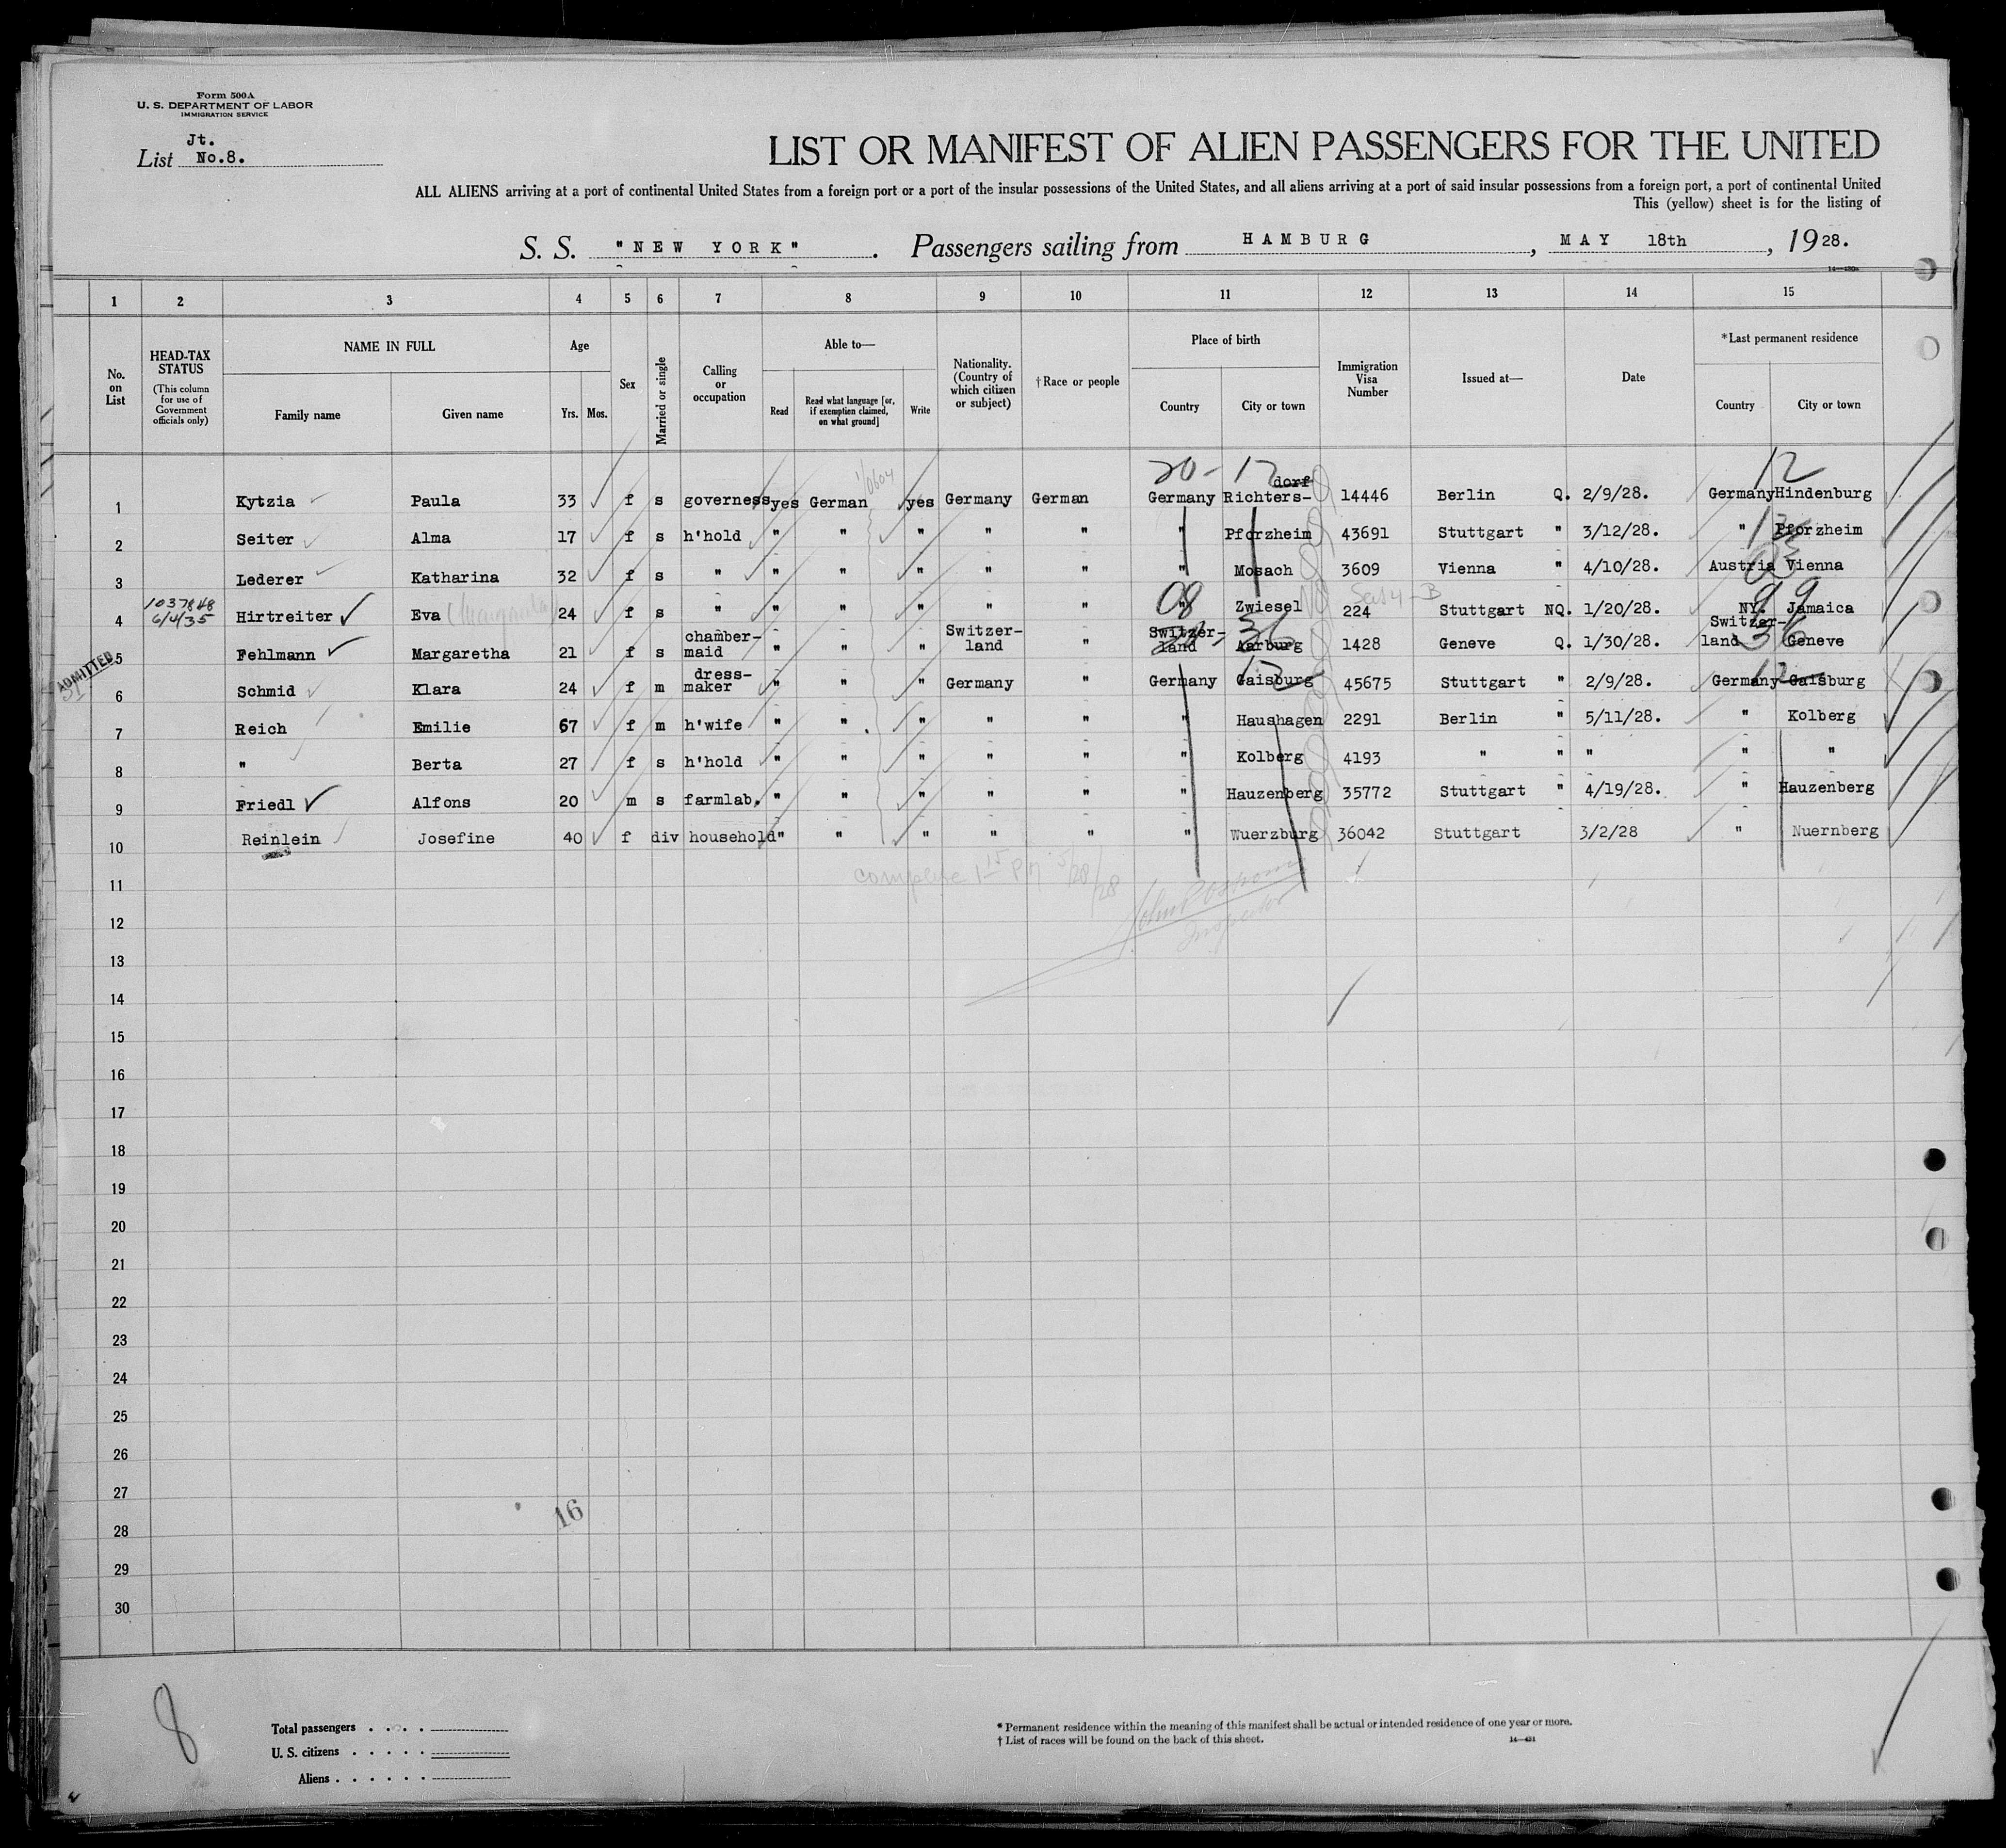 Form 500A
U. S. DEPARTMENT OF LABOR
IMMIGRATION SERVICE
Jt.
List No.8.
LIST OR MANIFEST OF ALIEN PASSENGERS FOR THE UNITED
ALL ALIENS arriving at a port of continental United States from a foreign port or a port of the insular possessions of the United States, and all aliens arriving at a port of said insular possessions from a foreign port, a port of continental United
This (yellow) sheet is for the listing of
S. S. "NEW YORK" . Passengers sailing from HAMBURG , MAY 18th , 1928.
1 2 3 4 5 6 7 8 9 10 11 12 13 14 15
No. on List
HEAD-TAX STATUS
(This column for use of Government officials only)
NAME IN FULL
Family name
Given name
Age
Yrs. Mos.
Sex
Married or single
Calling or occupation
Able to—
Read
Read what language [or, if exemption claimed, on what ground]
Write
Nationality. (Country of which citizen or subject)
†Race or people
Place of birth
Country
City or town
Immigration Visa Number
Issued at—
Date
*Last permanent residence
Country
City or town
20- 12 12
1 Kytzia Paula 33 f s governess yes German yes Germany German Germany Richters-dorf 14446 Berlin Q. 2/9/28. Germany Hindenburg
2 Seiter Alma 17 f s h'hold " " " " " " Pforzheim 43691 Stuttgart " 3/12/28. " Pforzheim
3 Lederer Katharina 32 f s " " " " " " " Mosach 3609 Vienna " 4/10/28. Austria Vienna
1037848
6/4/35
4 Hirtreiter Eva 24 f s " " " " " " " Zwiesel 224 Stuttgart NQ. 1/20/28. NY. Jamaica
08 99
5 Fehlmann Margaretha 21 f s chamber-maid " " " Switzer-land " Switzer-land Aarburg 1428 Geneve Q. 1/30/28. Switzer-land Geneve
36 36
ADMITTED
6 Schmid Klara 24 f m dress-maker " " " Germany " Germany Gaisburg 45675 Stuttgart " 2/9/28. Germany Gaisburg
12 12
7 Reich Emilie 67 f m h'wife " " " " " " Haushagen 2291 Berlin " 5/11/28. " Kolberg
8 " Berta 27 f s h'hold " " " " " " Kolberg 4193 " " " " "
9 Friedl Alfons 20 m s farmlab. " " " " " " Hauzenberg 35772 Stuttgart " 4/19/28. " Hauzenberg
10 Reinlein Josefine 40 f div household " " " " " " Wuerzburg 36042 Stuttgart 3/2/28 " Nuernberg
complete 1 15 PM 5/28/28
Inspector
11
12
13
14
15
16
17
18
19
20
21
22
23
24
25
26
27
28
29
30
16
8
Total passengers . . . .
U. S. citizens . . . . .
Aliens . . . . . .
* Permanent residence within the meaning of this manifest shall be actual or intended residence of one year or more.
† List of races will be found on the back of this sheet.
14—431